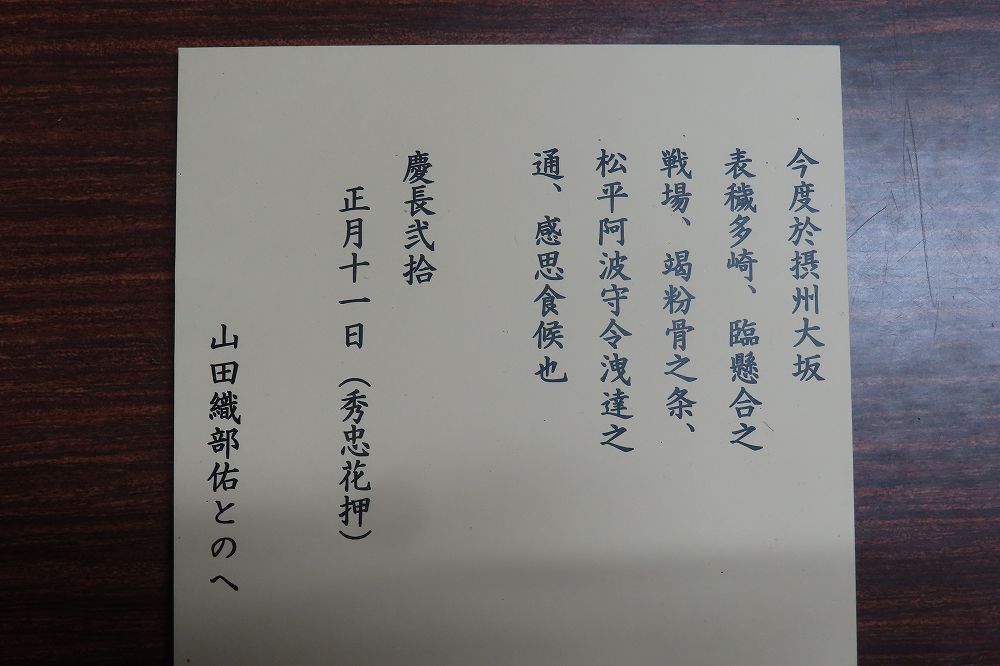 今度於摂州大坂
表穢多崎、臨懸合之
戦場、竭粉骨之条、
松平阿波守令洩達之
通、感思食候也
慶長弐拾
正月十一日（秀忠花押）
山田織部佑とのへ